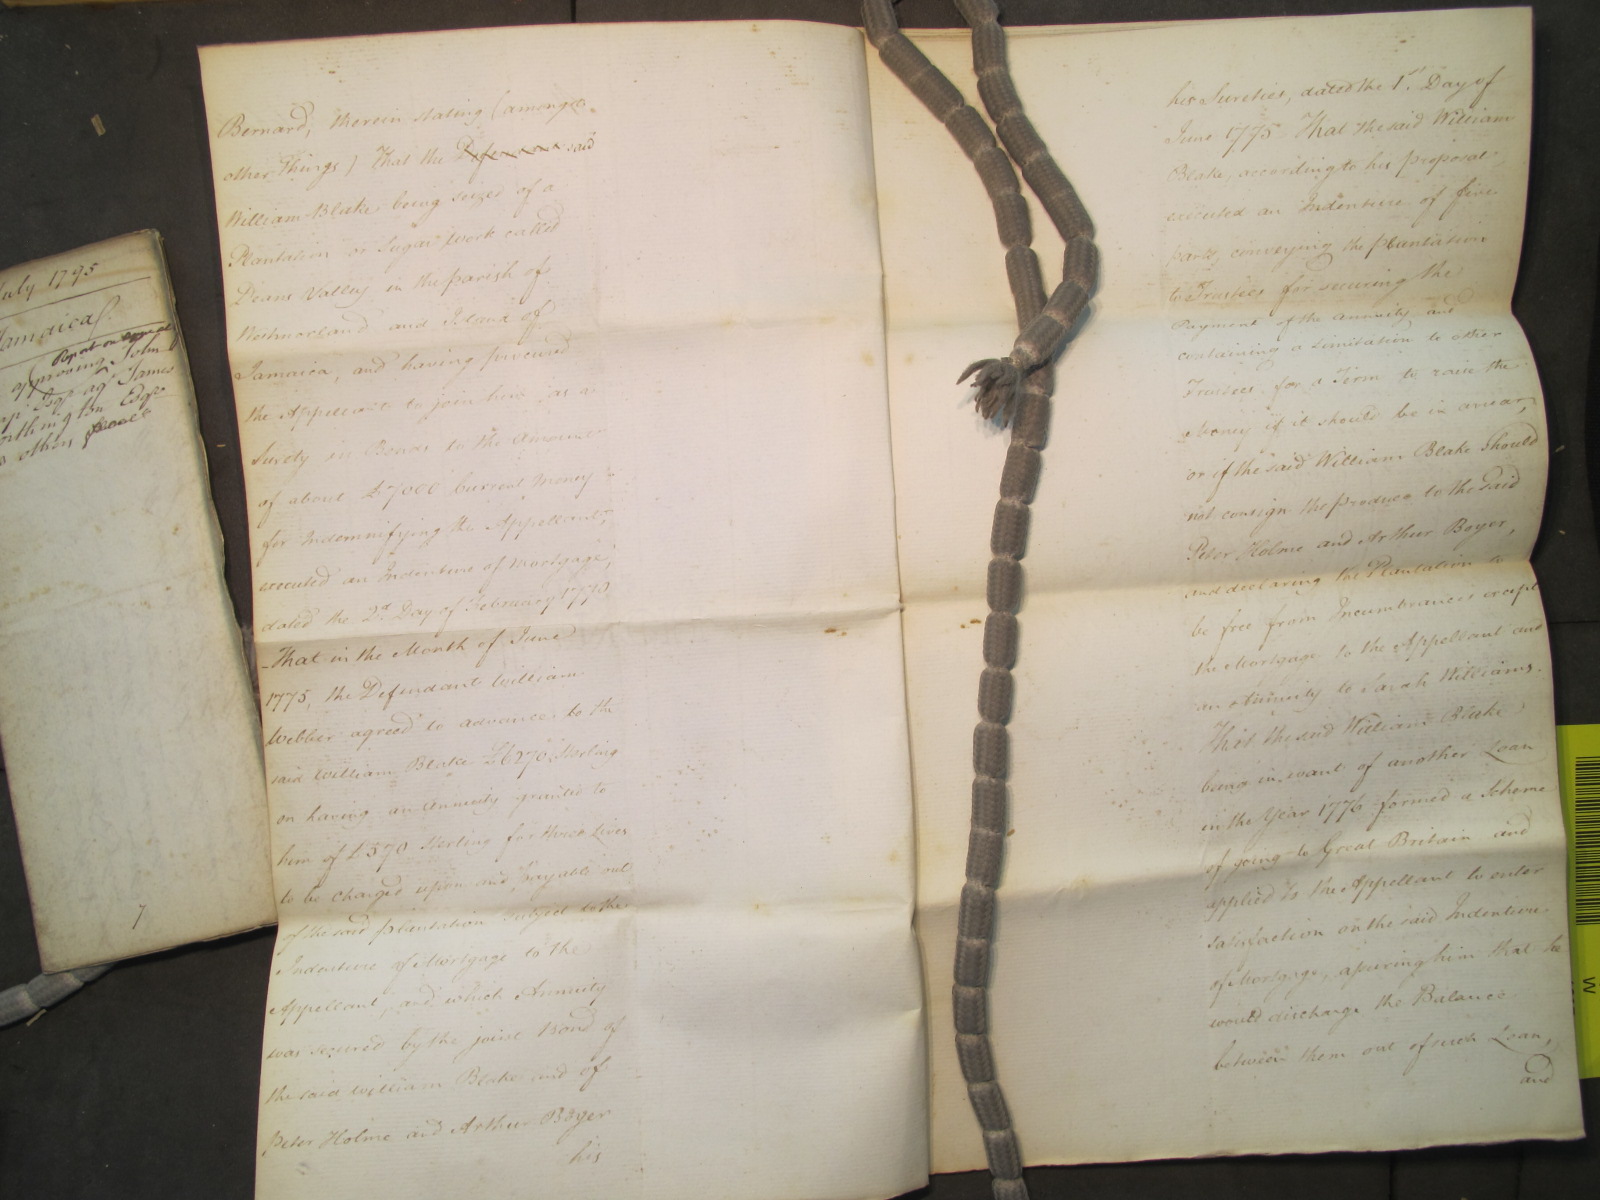 July 1795
Jamaica
Report on appeal
approving John
Esqr. agt. James
Esqr.
others
7
Bernard, therein stating (amongst
other Things) That the Defendant said
William Blake being seized of a
Plantation or Sugar Work called
Deans Valley in the parish of
Westmorland and Island of
Jamaica, and having procured
the Appellant to join him as a
Surety in Bonds to the Amount
of about £7000 Current Money
for Indemnifying the Appellant,
executed an Indenture of Mortgage,
dated the 2d. Day of February 1770
-That in the Month of June
1775, the Defendant William
Webber agreed to advance to the
said William Blake £6270 Sterling
on having an Annuity granted to
him of £570 Sterling for three Lives
to be charged upon and payable out
of the said plantation subject to the
Indenture of Mortgage to the
Appellant, and which Annuity
was secured by the joint Bond of
the said William Blake and of
Peter Holme and Arthur Boyer
his
his Sureties, dated the 1st. Day of
June 1775 - That the said William
Blake, according to his proposal
executed an Indenture of five
parts, conveying the plantation
to Trustees for securing the
Payment of the annuity and
containing a Limitation to other
Trustees for a Term to raise the
Money if it should be in arrear,
or if the said William Blake should
not consign the produce to the said
Peter Holme and Arthur Boyer,
and declaring the Plantation to
be free from Incumbrances except
the Mortgage to the Appellant and
an Annuity to Sarah Williams.
That the said William Blake
being in want of another Loan
in the Year 1776 formed a Scheme
of going to Great Britain and
applied to the Appellant to enter
satisfaction on the said Indenture
of Mortgage, assuring him that he
would discharge the Balance
between them out of such Loan,
and
W